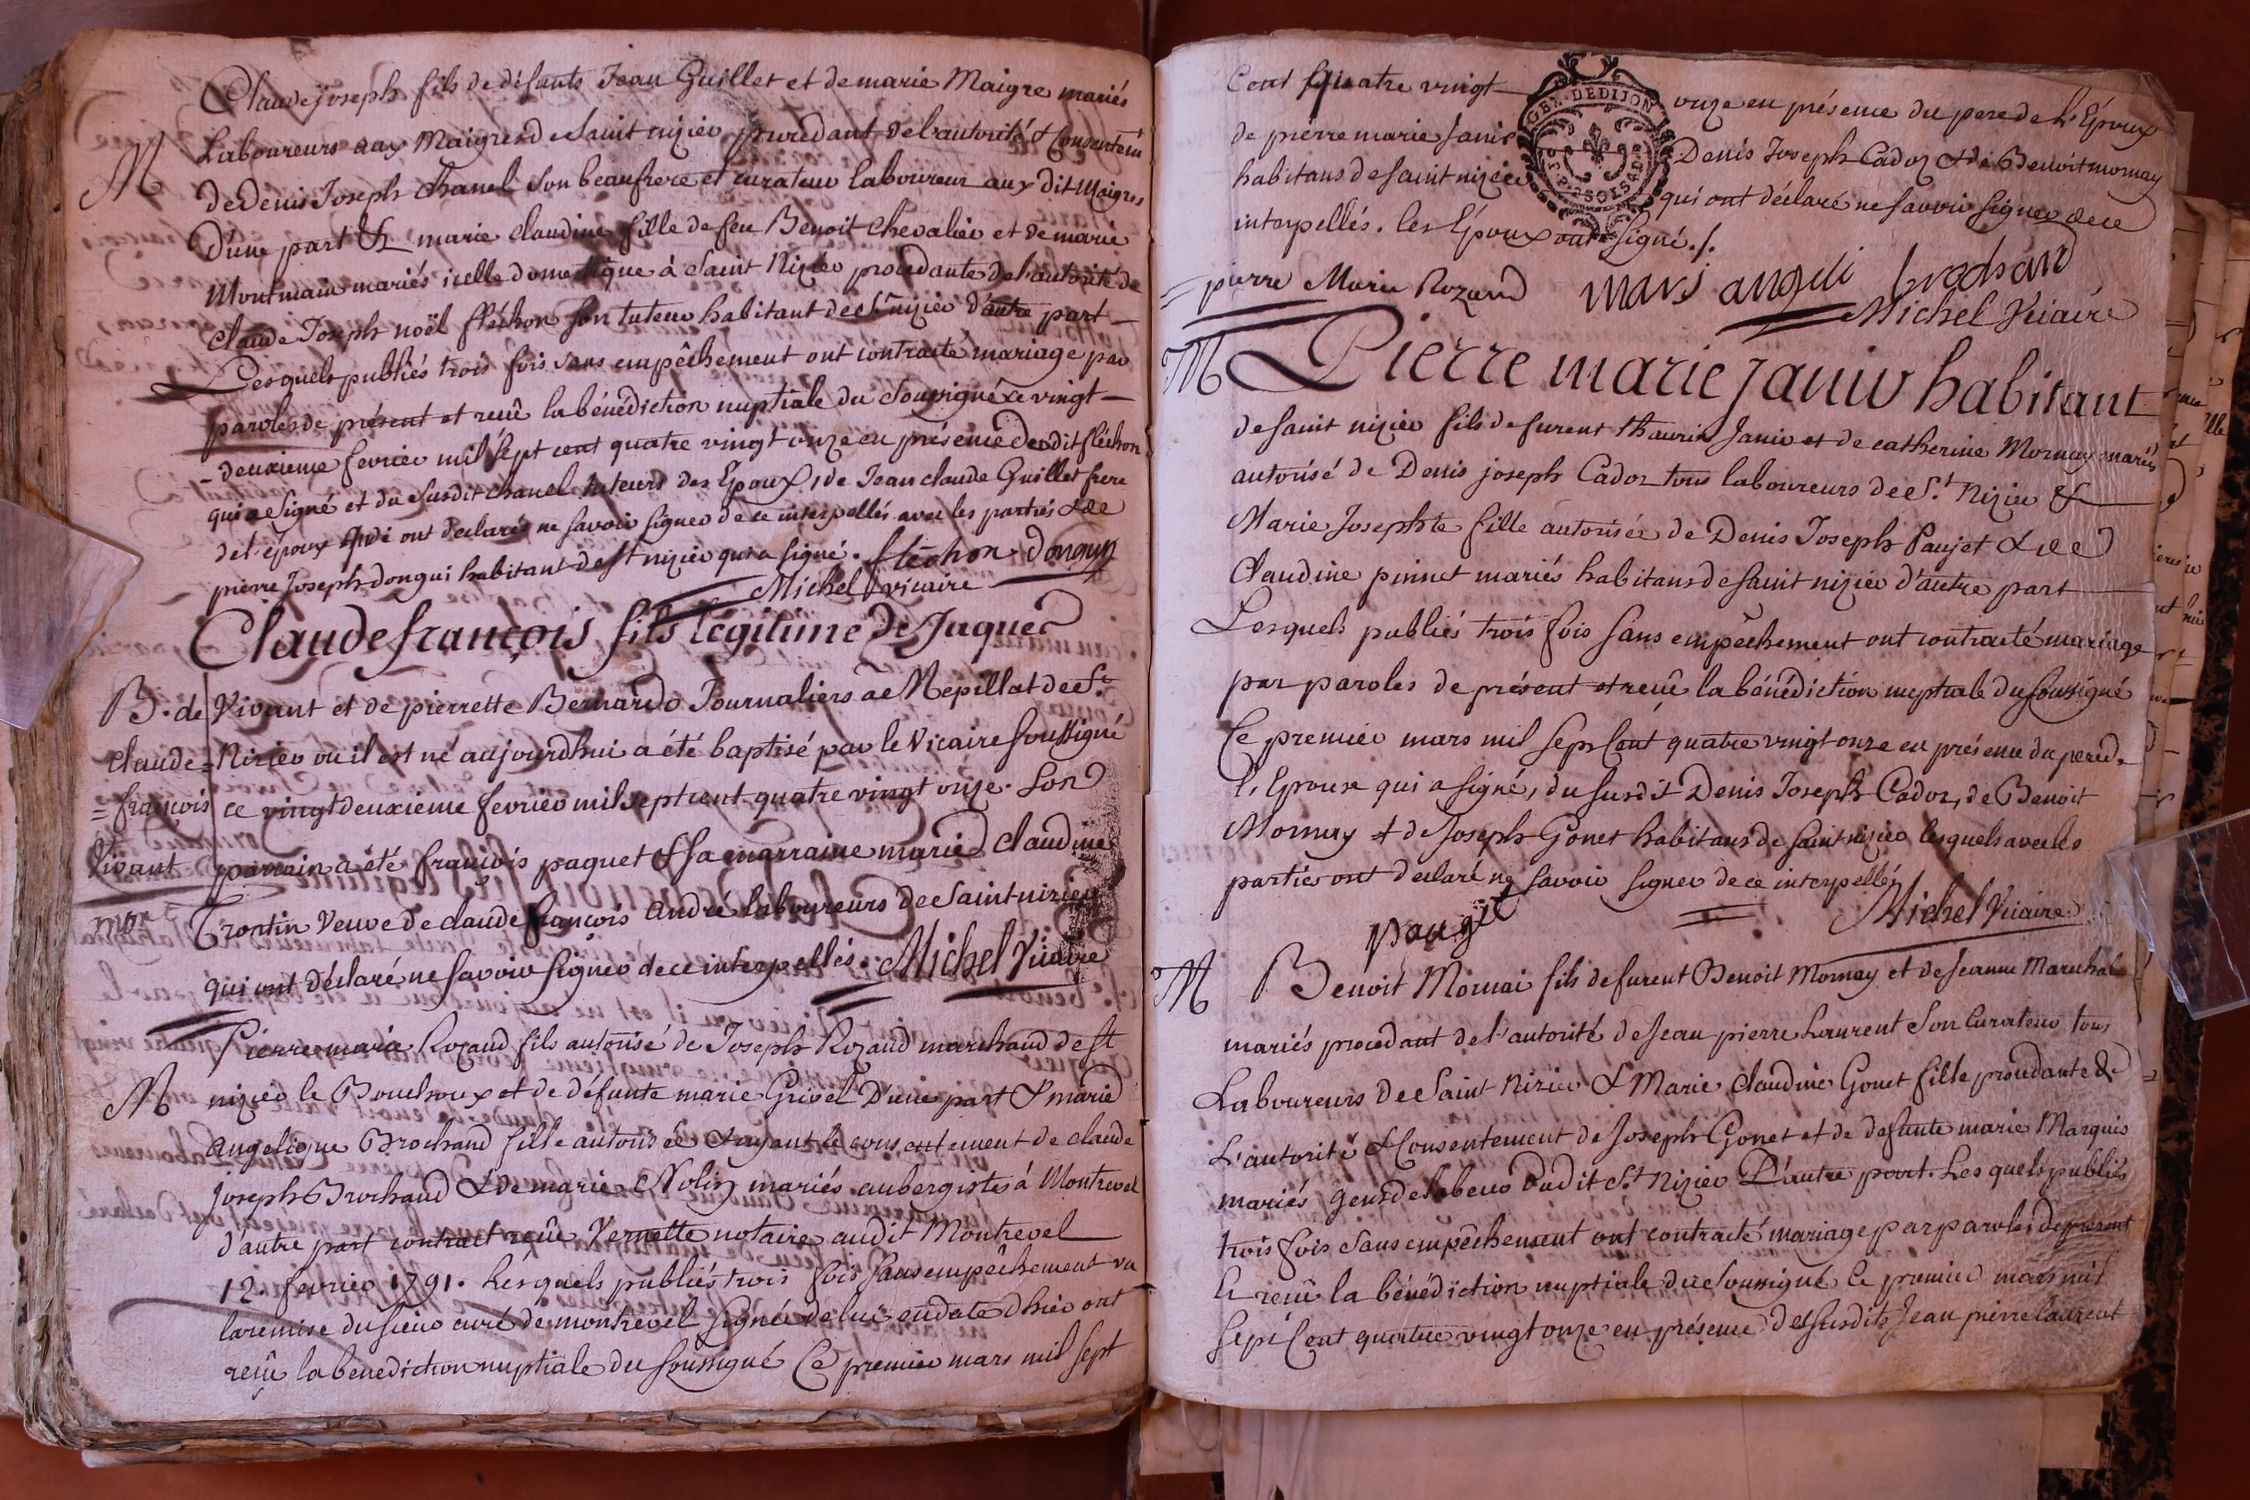 Claude joseph fils de défunts Jean Guillet et de marie Maigre mariés
M
Laboureurs aux Maigres de saint nizier procedant de l'autorité & Consentemt
de Denis Joseph Chanel son beaufrere et curateur laboureur aux dit Maigres
D'une part & marie claudine fille de feu Benoit Chevalier et de marie
Montmain mariés icelle domestique à saint Nizier procedante de l'autorité de
Claude Joseph noël fléchon son tuteur habitant de st nizier d'autre part
Lesquels publiés trois fois sans empêchement ont contracté mariage par
paroles de présent et reçû la bénédiction nuptiale du soussigné ce vingt
deuxieme fevrier mil sept cent quatre vingt onze en présence dudit fléchon
qui a signé et du susdit chanel tuteurs des Epoux, de Jean claude Guillet frere
de l'époux qui ont déclarés ne savoir signer de ce interpellés avec les parties & de
pierre Joseph dongui habitant de st nizier qui a signé. fléchon donguy
Michel vicaire
Claude françois fils légitime de Jaques
B. de Vivant et de pierrette Bernard Journaliers de Repillat de st
Claude = Nizier ou il est né aujourdhui a été baptisé par le Vicaire soussigné
= françois ce vingt deuxieme fevrier mil sept cent quatre vingt onze. Son
Vivant parrain a été françois paquet & sa marraine marie claudine
mort Trontin Veuve de claude françois andré laboureurs de saint nizier
qui ont déclaré ne savoir signer de ce interpellés. Michel Vicaire
Pierre marie Rozand fils autorisé de Joseph Rozand marchand de st
M nizier le Bouchoux et de défunte marie Grivel D'une part & marie
angelique Brochand fille autorisée & ayant le consentement de claude
joseph Brochand & de marie Nolin mariés aubergistes à Montrevel
d'autre part contract reçû Vernette notaire audit Montrevel
12 fevrier 1791. Lesquels publiés trois fois sans empêchement vu
la remise du sieur curé de montrevel signée de lui en date d'hier ont
reçû la bénédiction nuptiale du soussigné Ce premier mars mil sept
Cent quatre vingt onze en présence du pere de l'Époux
GEN. DE DIJON
de pierre marie Janin Denis Joseph Cadoz & de Benoit mornay
habitans de saint nizier qui ont déclaré ne savoir signer de ce
interpellés. les Époux ont signé ./.
pierre Marie Rozand mari angeli brochand
Michel Vicaire
M Pierre marie Janin habitant
de saint nizier fils de furent thaurin Janin et de catherine Mornay mariés
autorisé de Denis joseph Cadoz tous laboureurs de st Nizier &
Marie Josephte fille autorisée de Denis Joseph Paujet & de
Claudine pinnet mariés habitans de saint nizier d'autre part
Lesquels publiés trois fois sans empêchement ont contracté mariage
par paroles de présent et reçû la bénédiction nuptiale du soussigné
Ce premier mars mil sept Cent quatre vingt onze en présence du pere de
l'Epouse qui a signé, du susdit Denis Joseph Cadoz, de Benoit
Mornay & de Joseph Gonet habitans de saint nizier lesquels avec les
parties ont déclaré ne savoir signer de ce interpellés
pauget Michel Vicaire
M Benoit Mornai fils de furent Benoit Mornay et de Jeanne Marechal
mariés procedant de l'autorité de Jean pierre Laurent son Curateur tous
Laboureurs de saint Nizier & Marie Claudine Gonet fille procedante de
L'autorité & Consentement de Joseph Gonet et de défunte marie Marquis
mariés gens de labeur dudit st Nizier D'autre part. Lesquels publiés
trois fois sans empêchement ont contracté mariage par paroles de présent
& reçû la bénédiction nuptiale du soussigné Ce premier mars mil
sept Cent quatre vingt onze en présence des susdits Jean pierre laurent